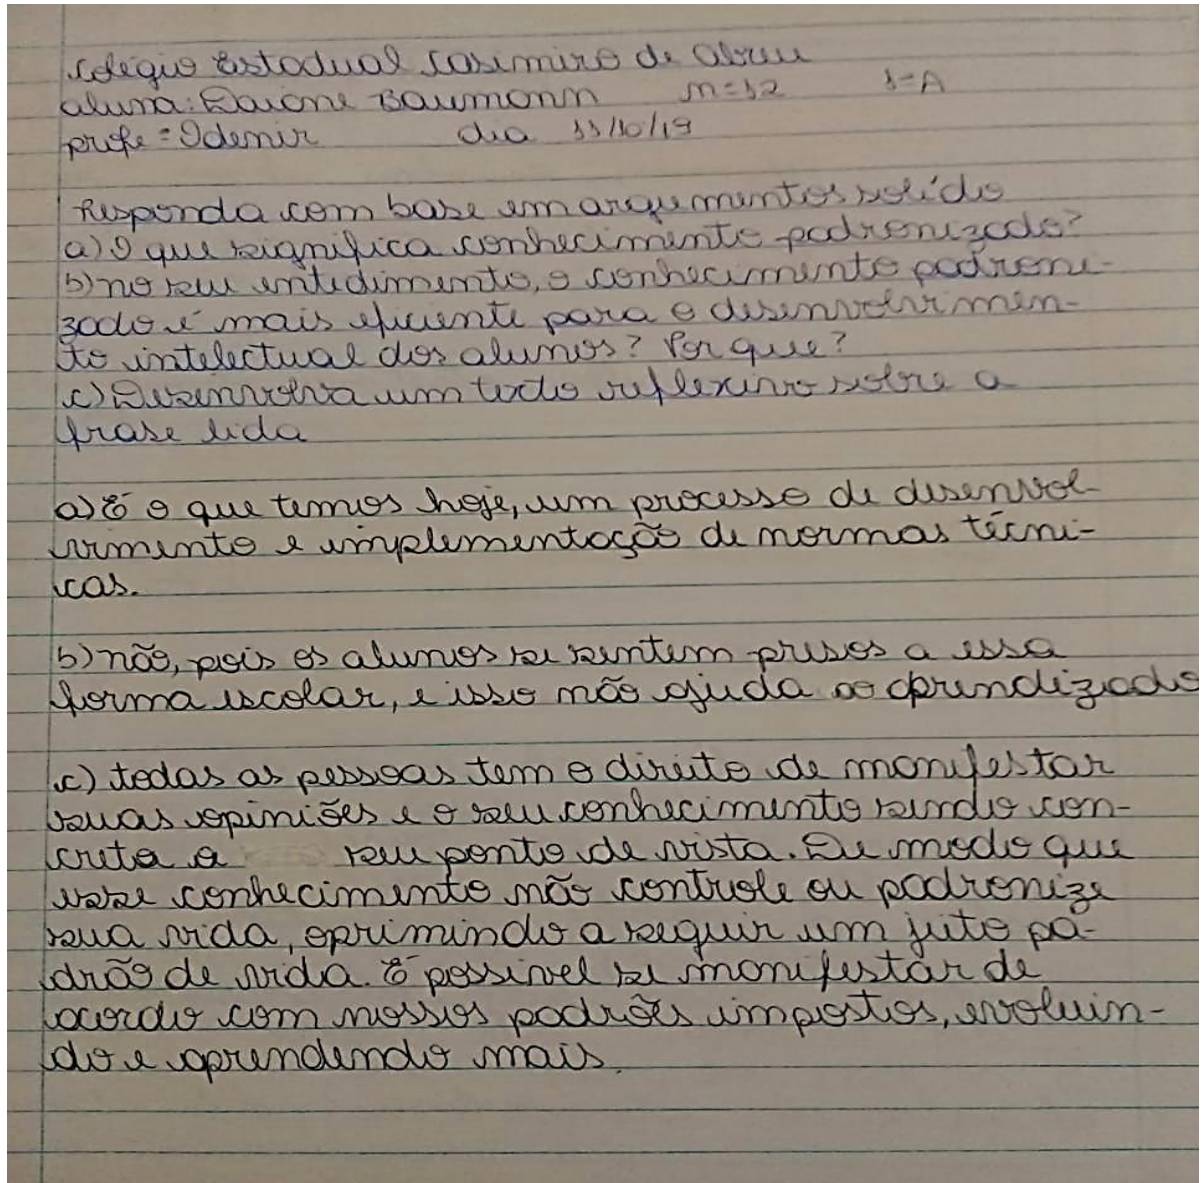 colégio Estadual Casimiro de Abreu
aluna: Daiane Baumann n=12 1=A
profe=Odemir dia 11/10/19
Responda com base em arqumentos solído
a) O que significa conhecimento padronizado?
b) no seu entidimento, o conhecimento padroni-
zado é mais eficiente para o desenvolvimen-
to intelectual dos alunos? Por que?
c) Desenvolva um texto reflexivo sobre a
frase lida
a) É o que temos hoje, um processo de desenvol-
vimento e implementação de normas técni-
cas.
b) não, pois os alunos se sentem presos a essa
forma escolar, e isso não ajuda ao aprendizado
c) todas as pessoas tem o direito de manifestar
suas opiniões e o seu conhecimento sendo con-
creta a seu ponto de vista. De modo que
esse conhecimento não controle ou padronize
sua vida, oprimindo a seguir um jeito pa-
drão de vida. É possivel se manifestar de
acordo com nossos padrões impostos, evoluin-
do e aprendendo mais.